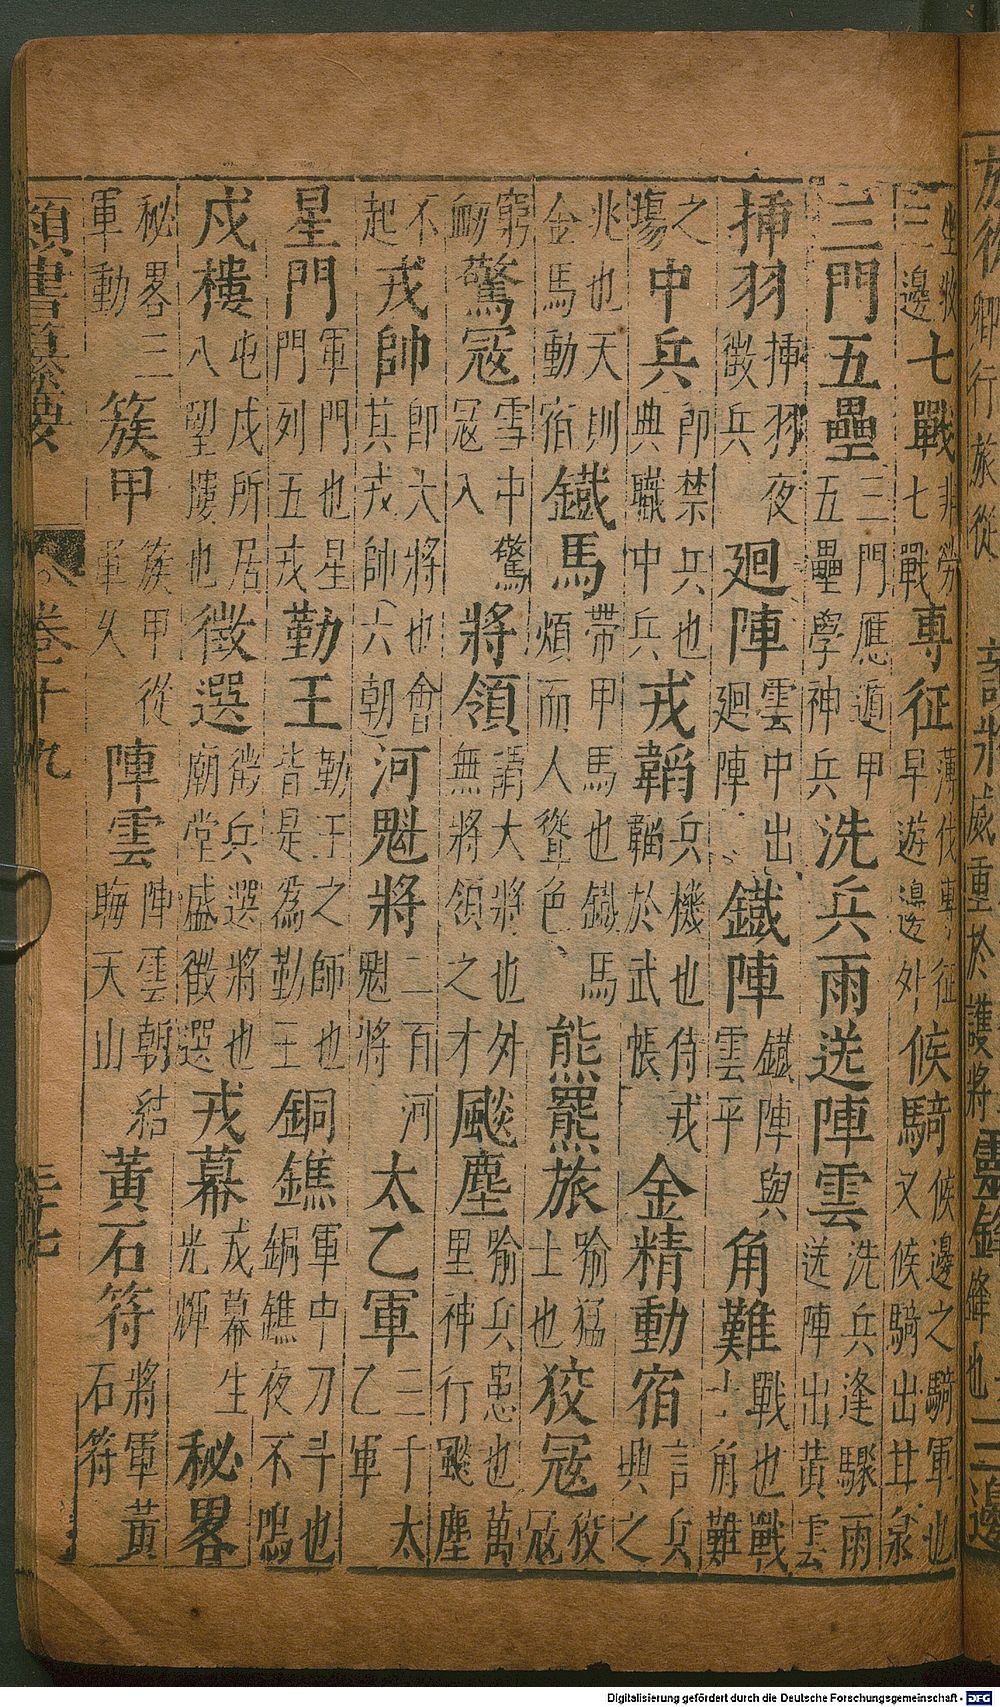 生牧三邊七戰非勞七戰專征薄伐專征早遊邊外候騎候邊之騎軍也又候騎出甘泉
三門五壘三門應遁甲五壘學神兵洗兵雨送陣雲洗兵逢驟雨送陣出黃雲
揷羽揷羽夜徵兵廻陣雲中出廻陣鐵陣鐵陣與雲平角難戰也戰角難
之塲中兵即禁兵也典職中兵戎韜兵機也侍戎韜於武帳金精動宿言兵興之
兆也天則金馬動宿鐵馬帶甲馬也鐵馬煩而人聳色熊羆旅喻猛士也狡寇狡寇
窮衂驚寇雪中驚寇入將領謂大將也外無將領之才颷塵喻兵患也萬里神行颷塵
不起戎帥即大將也會其戎帥六朝河魁將二百河魁將太乙軍三千太乙軍
星門軍門也星門列五戎勤王勤王之師也皆是為勤王銅鐎軍中刀斗也銅鐎夜不鳴
戍樓屯戍所居八望樓也徵選徵兵選將也廟堂盛徵選戎幕戎幕生光輝秘畧
秘畧三軍動簇甲簇甲從軍久陣雲陣雲朝結晦天山黃石符將軍黃石符
類書纂要 卷十九 三十七
Digitalisierung gefördert durch die Deutsche Forschungsgemeinschaft - DFG